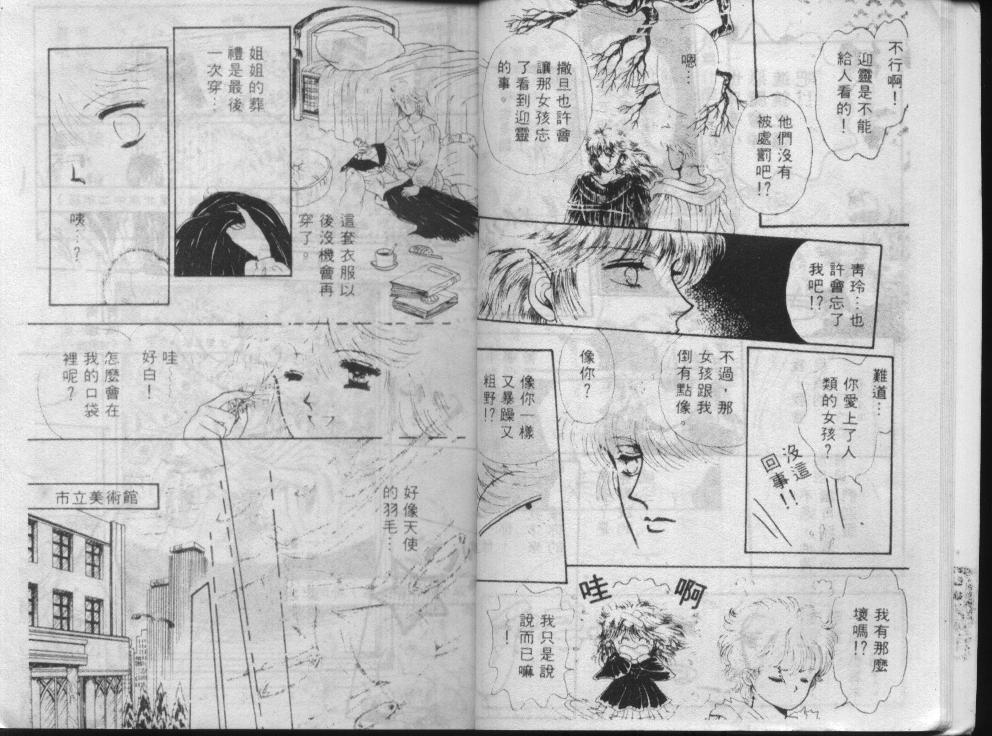 不行啊！
迎靈是不能
給人看的！
他們沒有
被處罰吧！？
嗯…
撒旦也許會
讓那女孩忘
了看到迎靈
的事。
青玲…也
許會忘了
我吧！？
難道…
你愛上了人
類的女孩？
沒這
回事！！
不過，那
女孩跟我
倒有點像。
像你？
像你一樣
又暴躁又
粗野！？
我有那麼
壞嗎！？
啊
哇
我只是說
說而已嘛
！
姐姐的葬
禮是最後
一次穿…
這套衣服以
後沒機會再
穿了。
咦…？
哇
好白！
怎麼會在
我的口袋
裡呢？
好像天使
的羽毛…
市立美術館